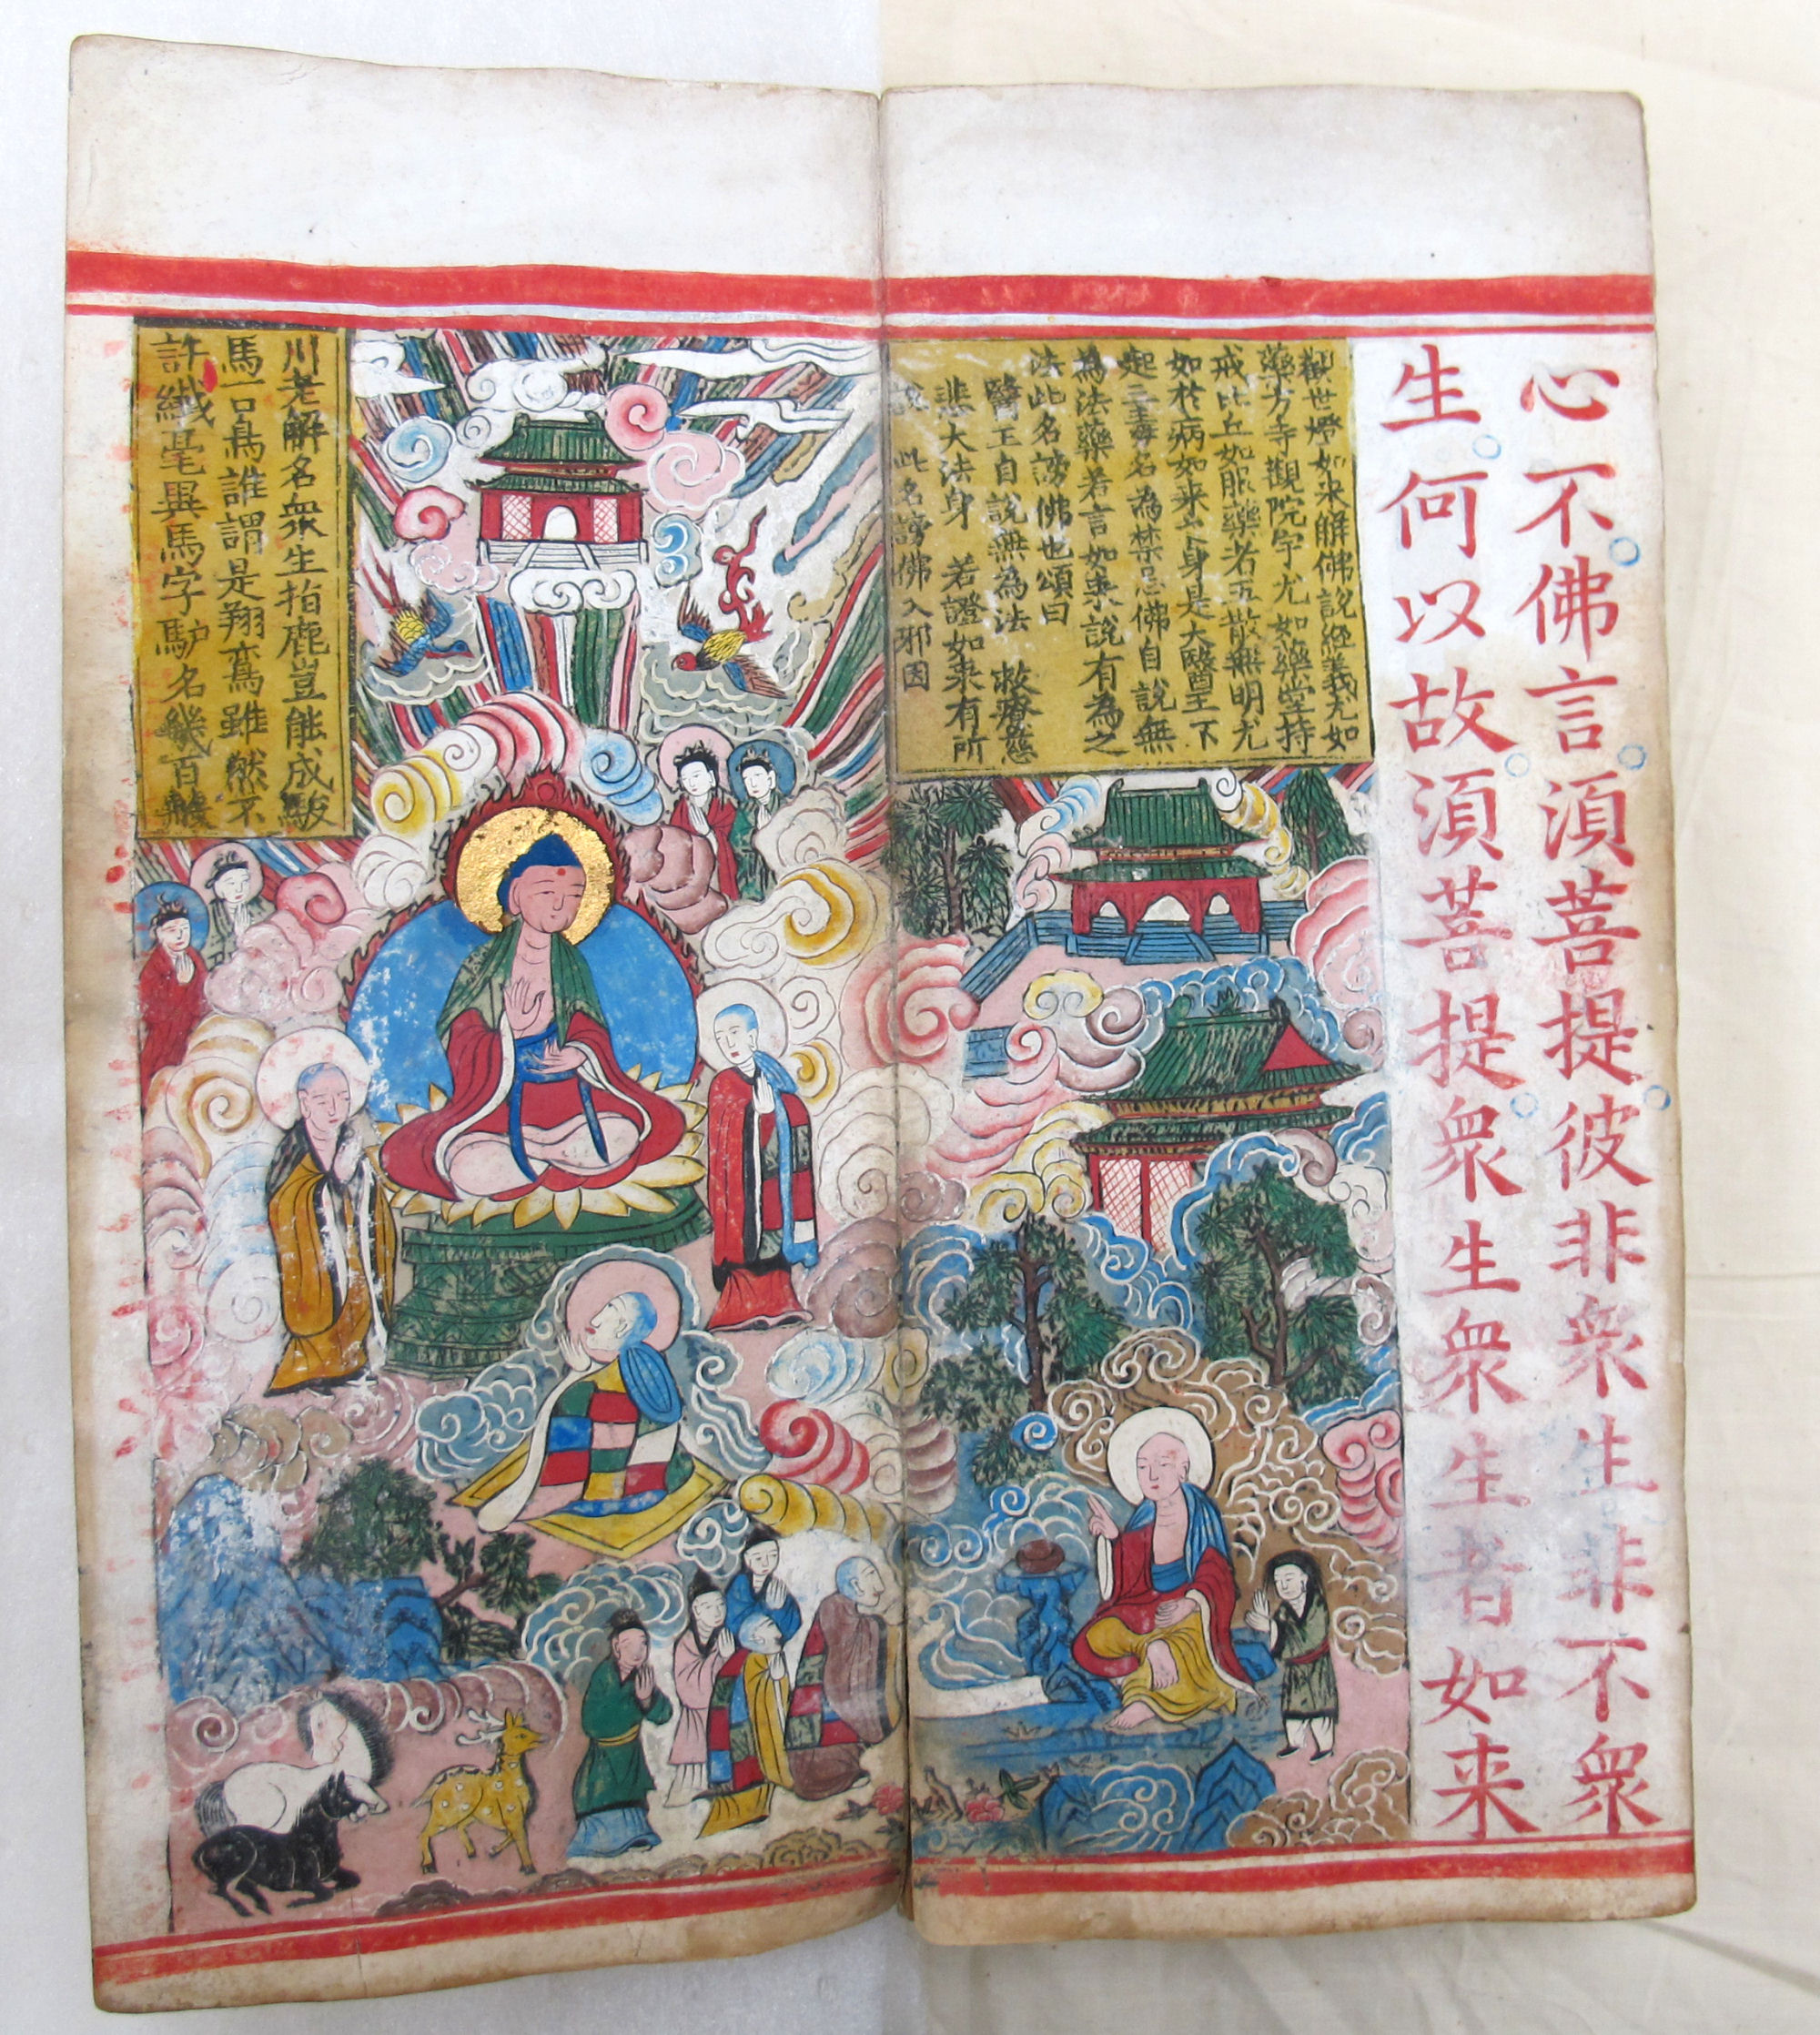 心不佛言湏菩提彼非衆生非不衆
生何以故湏菩提衆生衆生者如来
觀世燈如来解佛說經義尤如
藥方寺觀院宇尤如藥堂持
戒比丘如服藥者五散無明尤
如於病如来亠身是大醫王下
起三毒名為禁忌佛自說無
為法藥若言如来說有為之
法此名謗佛也頌曰
醫王自說無為法 救療慈
悲大法身 若證如来有所
說 此名謗佛入邪因
川老解名衆生指鹿豈能成駿
馬言烏誰謂是翔鸞雖然不
許纖毫異馬字驴名幾百般